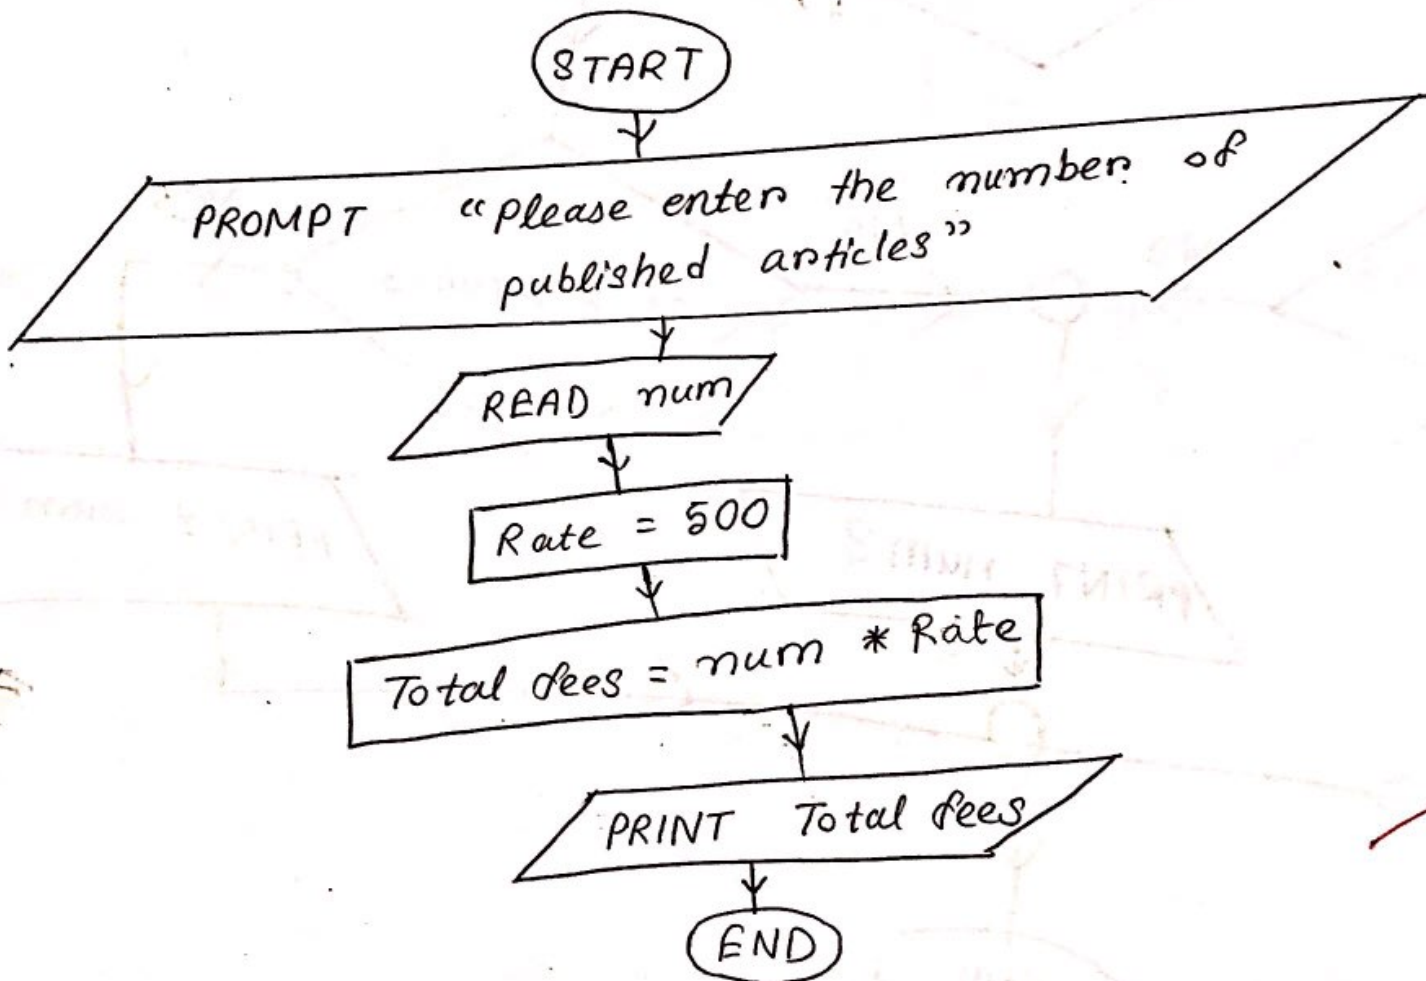 START
PROMPT “Please enter the number of
published articles”
READ num
Rate = 500
Total fees = num * Rate
PRINT Total fees
END
PRINT num 2